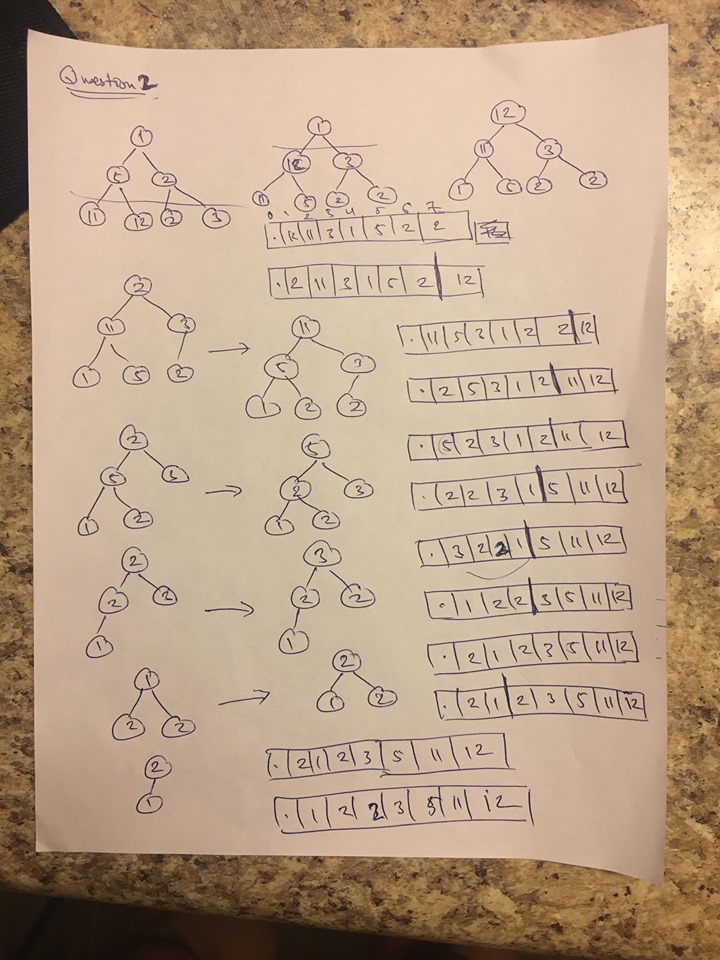 Question 2
1 1 12
5 2 12 3 11 3
11 12 2 3 11 5 2 2 1 5 2 2
0 1 2 3 4 5 6 7
. 12 11 3 1 5 2 2
. 2 11 3 1 5 2 12
2 → 11
11 3 5 3
1 5 2 1 2 2
. 11 5 3 1 2 2 12
. 2 5 3 1 2 11 12
2 → 5
5 3 2 3
1 2 1 2
. 5 2 3 1 2 11 12
. 2 2 3 1 5 11 12
2 → 3
2 2 2 2
1 1
. 3 2 2 1 5 11 12
. 1 2 2 3 5 11 12
1 → 2
2 2 1 2
. 2 1 2 3 5 11 12
. 2 1 2 3 5 11 12
2
1
. 2 1 2 3 5 11 12
. 1 2 2 3 5 11 12